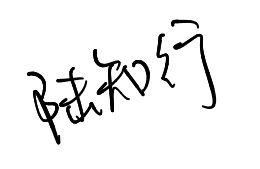 陆知行